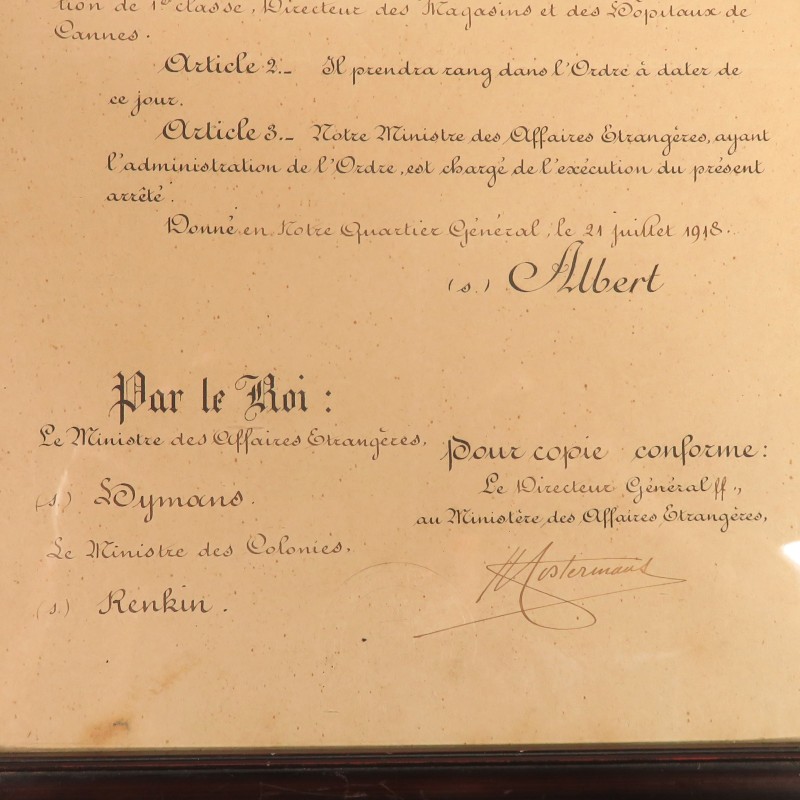 tion de 1re classe, Directeur des Magasins et des Hôpitaux de
Cannes.
Article 2._ Il prendra rang dans l'Ordre à dater de
ce jour.
Article 3._ Notre Ministre des Affaires Etrangères, ayant
l'administration de l'Ordre, est chargé de l'exécution du présent
arrêté.
Donné en Notre Quartier Général, le 21 juillet 1918.
(s.) Albert
Par le Roi :
Le Ministre des Affaires Etrangères,
(s.) Hymans.
Le Ministre des Colonies,
(s.) Renkin.
Pour copie conforme :
Le Directeur Général ff.,
au Ministère des Affaires Etrangères,
Costermans